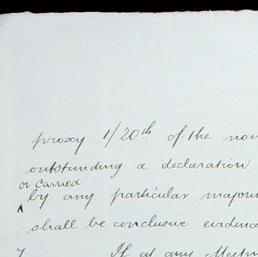 proxy 1/20th of the non
outstanding a declaration
or carried
by any particular major
shall be conclusive eviden
7 If at any Meetin